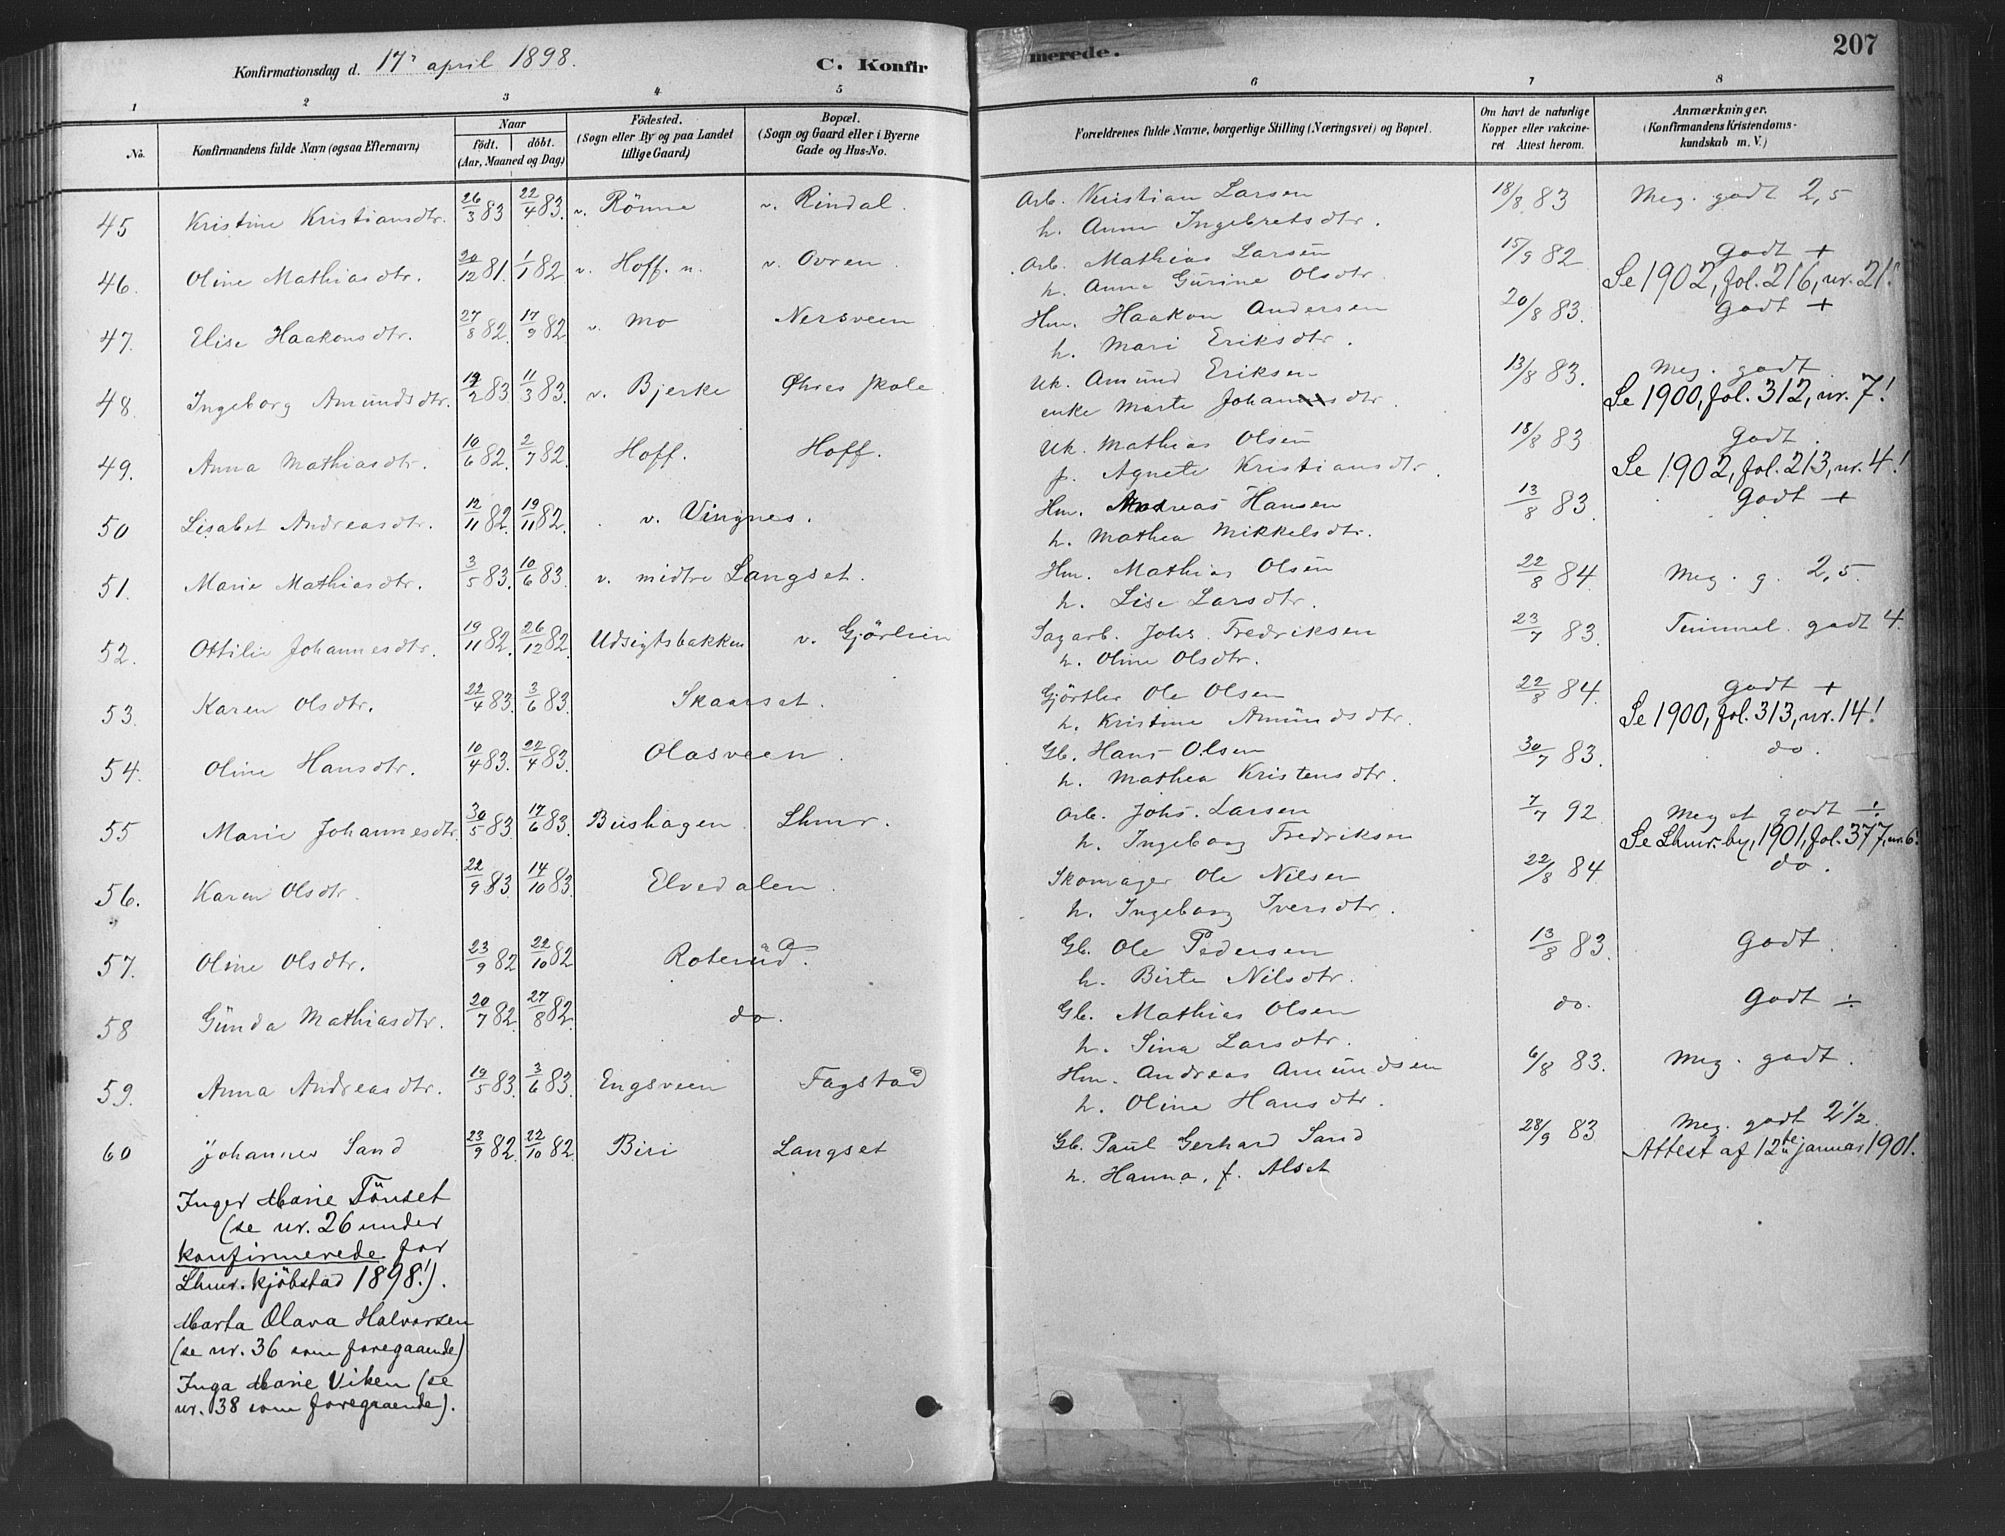 Konfirmationsdag d. 17 april 1898. C. Konfirmerede. 207
1 2 3 4 5 6 7 8
No. Konfirmandens fulde Navn (ogsaa Efternavn) Naar født. døbt. (Aar, Maaned og Dag) Fødested. (Sogn eller By og paa Landet tillige Gaard) Bopæl. (Sogn og Gaard eller i Byerne Gade og Hus-No. Forældrenes fulde Navne, borgerlige Stilling (Næringsvei) og Bopæl. Om havt de naturlige Kopper eller vakcineret Attest herom. Anmærkninger. (Konfirmandens Kristendomskundskab m. V.)
45 Kristine Kristiansdtr. 26/3 83 22/4 83. v. Rönne v. Rindal. Arb. Kristian Larsen 18/8 83 Meg. godt 2,5
h. Anne Ingebretsdtr.
46. Oline Mathiasdtr. 20/12 81. 1/1 82 v. Hoff. n. v. Ovren Arb. Mathias Larsen 15/9 82 Godt +
h. Anne Gurine Olsdtr. Se 1902, fol. 216, nr. 21!
47. Elise Haakonsdtr. 27/8 82. 17/9 82 v. Mo Nersveen Hm. Haakon Andersen 20/8 83. Godt +
h. Mari Eriksdtr.
48. Ingeborg Amundsdtr. 19/2 83 11/3 83. v. Bjerke Øhres skole Uk. Amund Eriksen 13/8 83. Meg. godt
enke Marte Johannesdtr. Se 1900, fol. 312, nr. 7!
49. Anna Mathiasdtr. 10/6 82. 2/7 82. Hoff. Hoff. Uk. Mathias Olsen 18/8 83 Godt.
p. Agnete Kristiansdtr. Se 1902, fol. 213, nr. 4!
50 Lisabet Andreasdtr. 12/11 82. 19/11 82. v. Vingnes. Hm. Andreas Hansen 13/8 83. Godt +
h. Mathea Mikkelsdtr.
51. Marie Mathiasdtr. 3/5 83. 10/6 83. v. midtre Langset. Hm. Mathias Olsen 22/8 84 Meg. g. 2,5.
h. Lise Larsdtr.
52. Ottilie Johannesdtr. 19/11 82. 26/12 82 Udsigtsbakken v. Gjörlien Sagarb. Johs. Fredriksen 23/7 83. Temmel. godt 4.
h. Oline Olsdtr.
53. Karen Olsdtr. 22/4 83. 3/6 83. Skaarset. Gjörtler Ole Olsen 22/8 84. Godt +
h. Kristine Amundsdtr. Se 1900, fol. 313, nr. 14!
54. Oline Hansdtr. 10/4 83. 22/4 83. Olasveen. Gb. Hans Olsen 30/7 83. do.
h. Mathea Kristensdtr.
55 Marie Johannesdtr. 30/5 83. 17/6 83. Bushagen Lhmr. Arb. Johs. Larsen 7/7 92. Meget godt ÷
h. Ingeborg Fredriksen Se Lhmr. by, 1901, fol. 377, nr. 6!
56. Karen Olsdtr. 22/9 83 14/10 83 Elvedalen. Skomager Ole Nilsen 22/8 84. do.
h. Ingeborg Iversdtr.
57. Oline Olsdtr. 23/9 82 22/10 82 Roterud. Gb. Ole Pedersen 13/8 83. Godt.
h. Birte Nilsdtr.
58 Gunda Mathiasdtr. 20/7 82. 27/8 82. do. Gb. Mathias Olsen do. Godt ÷
h. Sina Larsdtr.
59. Anna Andreasdtr. 19/5 83. 3/6 83. Engsveen Fagstad Hm. Andreas Amundsen 6/8 83. Meg. godt.
h. Oline Hansdtr.
60 Johannes Sand 23/9 82. 22/10 82. Biri Langset Gb. Paul Gerhard Sand 28/9 83. Meg. godt 2 1/2.
h. Hanna, f. Alset Attest af 12te januar 1901.
Inger Marie Tönset
(se nr. 26 under
konfirmerede for
Lhmr. kjöbstad 1898!).
Marta Olava Halvorsen
(se nr. 36 som foregaaende)
Inga Marie Viken (se
nr. 38 som foregaaende).